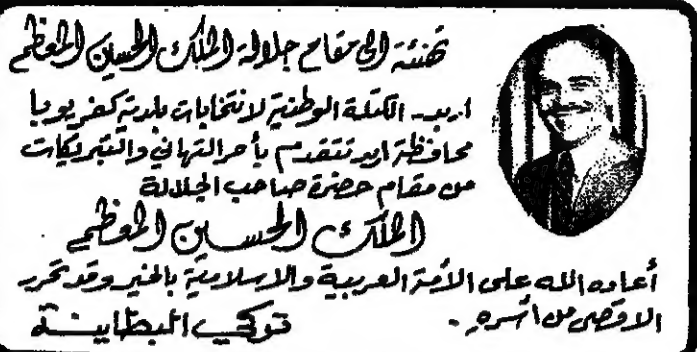 تهنئة إلى مقام جلالة الملك الحسين المعظم
اربد - الكتلة الوطنية لانتخابات بلدية كفريوبا
محافظة اربد تتقدم بأحر التهاني والتبريكات
من مقام حضرة صاحب الجلالة
الملك الحسين المعظم
أعاده الله على الأمة العربية والاسلامية بالخير وقد تحرر
الاقصى من أسره -
تركي البطاينة